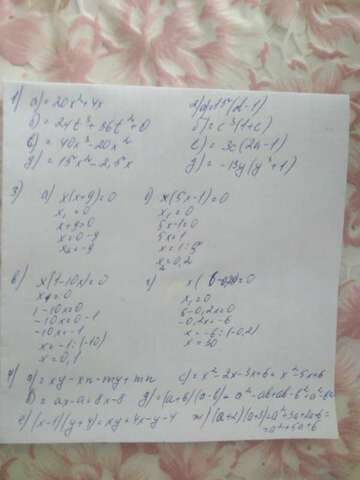 1) а) = 20x²+4x
б) = 24t³+36t²+0
в) = 40x³-20x²
д) = 15x²-2,5x
б) = c³(1+c)
с) = 3c(2k-1)
д) = -13y(y⁴+1)
3) а) x(x+9)=0
x₁=0
x+9=0
x=0-9
x₂=-9
б) x(5x-1)=0
x₁=0
5x-1=0
5x=1
x=1:5
x₂=0,2
в) x(1-10x)=0
x₁=0
1-10x=0
-10x=0-1
-10x=-1
x=-1:(-10)
x=0,1
г) x(6-0,2x)=0
x₁=0
6-0,2x=0
-0,2x=-6
x=-6:(-0,2)
x=30
4) а) = xy-xn-my+mn
б) = ax-a+8x-8
с) = x²-2x-3x+6=x²-5x+6
д) = (a+b)(a-b)=a²-ab+ab-b²=a²-b²
г) (x-1)(y+4)=xy+4x-y-4
ж) (a+2)(a+3)=a²+3a+2a+6=
=a²+5a+6